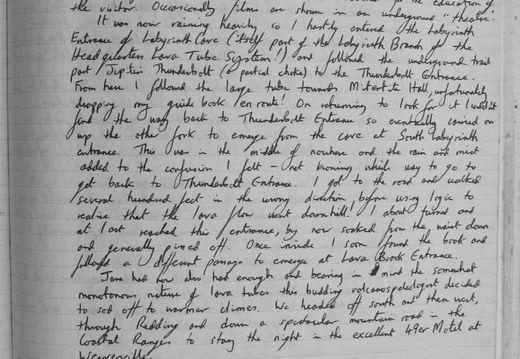 the visitor. Occasionally films are shown in an underground "theatre."
It was now raining heavily so I hastily entered the Labyrinth
Entrance of Labyrinth Cave (itself part of the Labyrinth Branch of the
Headquarters Lava Tube System!) and followed the underground trail
past Jupiter's Thunderbolt (a partial choke) to the Thunderbolt Entrance.
From here I followed the large tube towards Mitertite Hall, unfortunately
dropping my guide book en route! On returning to look for it I couldn't
find the way back to Thunderbolt Entrance so eventually carried on
up the other fork to emerge from the cave at South Labyrinth
entrance. This was in the middle of nowhere and the rain and mist
added to the confusion I felt - not knowing which way to go to
get back to Thunderbolt Entrance. I got to the road and walked
several hundred feet in the wrong direction before using logic to
realise that the lava flow went downhill! I about turned and
at last reached this entrance, by now soaked from the waist down
and generally pissed off. Once inside I soon found the book and
followed a different passage to emerge at Lava Brook Entrance.
Jane had now also had enough and bearing in mind the somewhat
monotonous nature of lava tubes this budding volcanospeleologist decided
to sod off to warmer climes. We headed off south and then west,
through Redding and down a spectacular mountain road in the
Coastal Ranges to stay the night in the excellent 49er Motel at
Weaverville.